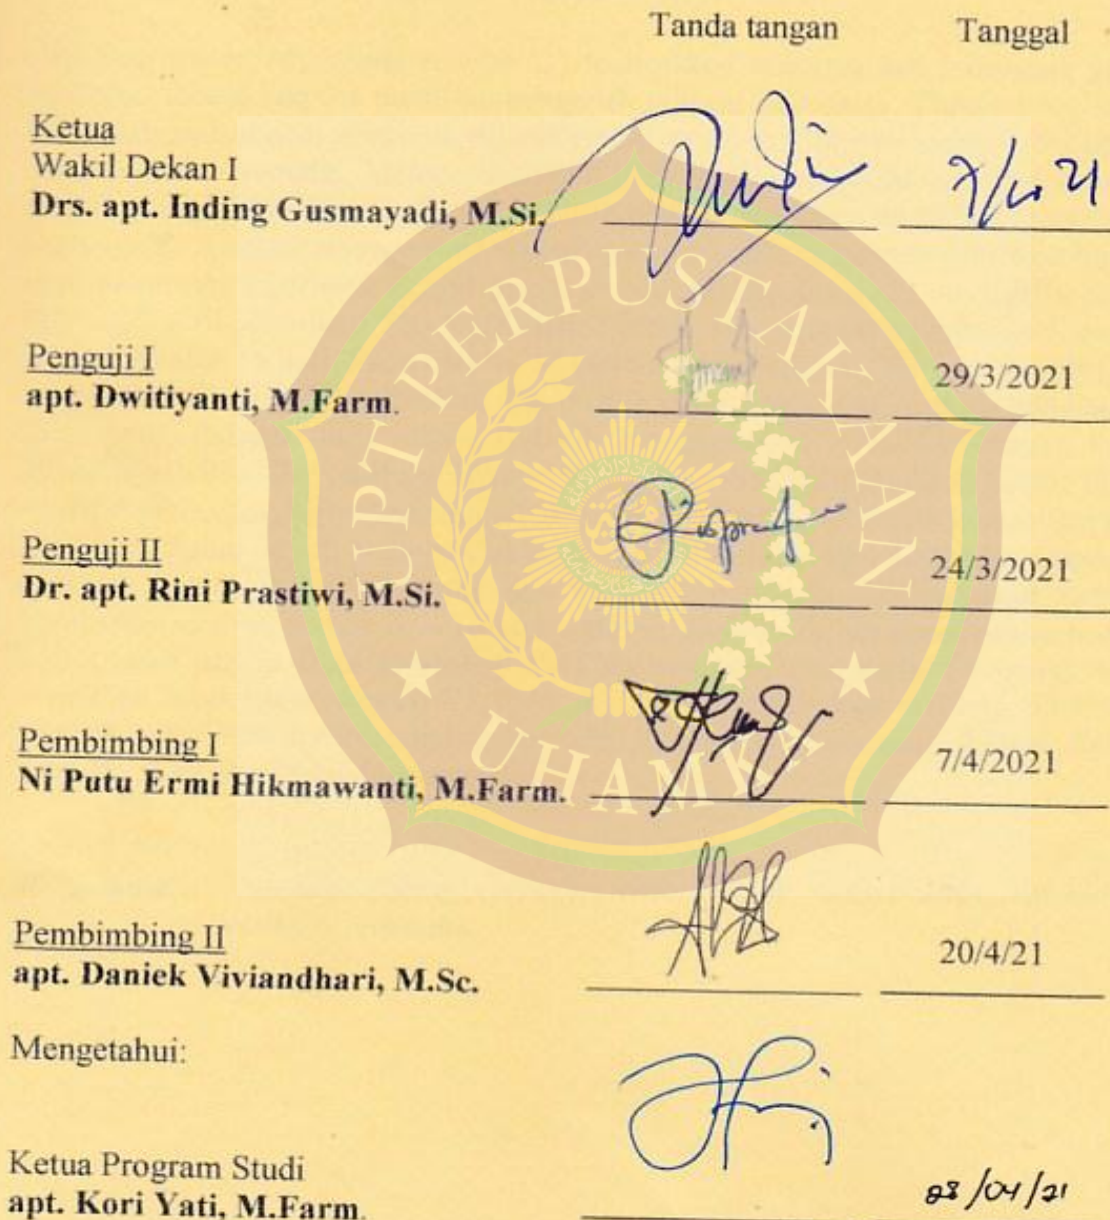 Tanda tangan Tanggal
Ketua
Wakil Dekan I
Drs. apt. Inding Gusmayadi, M.Si.
Penguji I
apt. Dwitiyanti, M.Farm. 29/3/2021
Penguji II
Dr. apt. Rini Prastiwi, M.Si. 24/3/2021
Pembimbing I
Ni Putu Ermi Hikmawanti, M.Farm. 7/4/2021
Pembimbing II
apt. Daniek Viviandhari, M.Sc. 20/4/21
Mengetahui:
Ketua Program Studi
apt. Kori Yati, M.Farm. 28/04/21
UPT PERPUSTAKAAN
UHAMKA